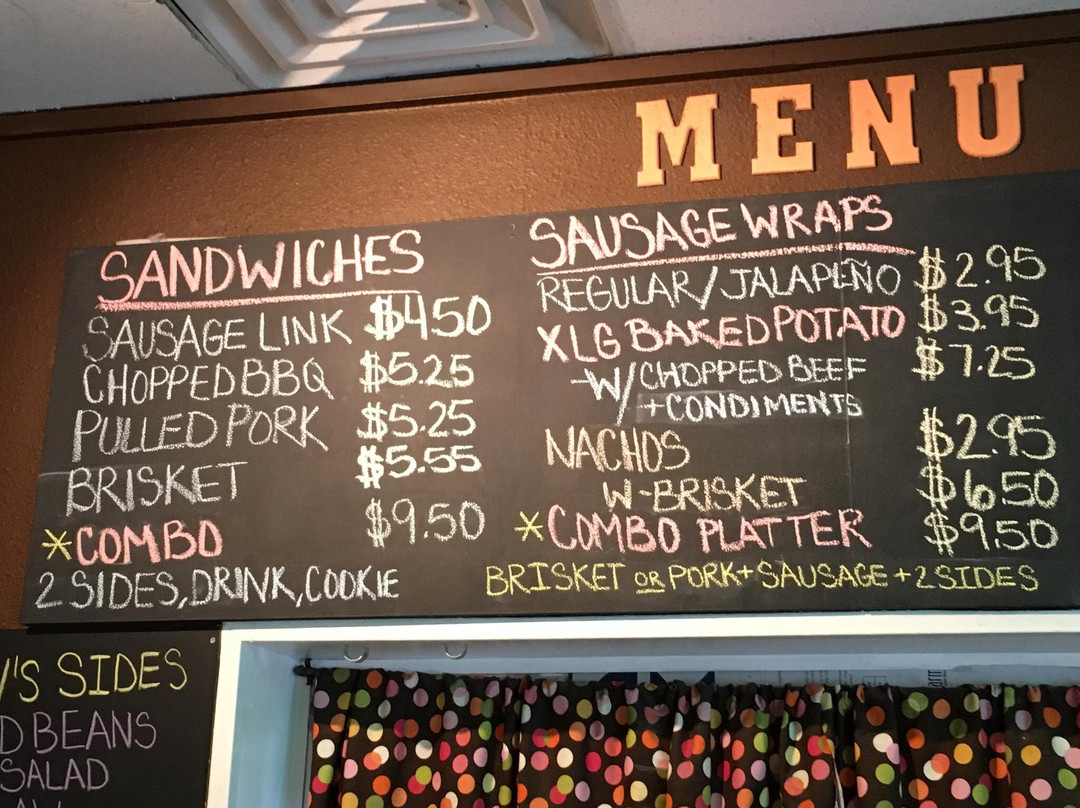 MENU
SANDWICHES
SAUSAGE LINK $4.50
CHOPPED BBQ $5.25
PULLED PORK $5.25
BRISKET $5.55
*COMBO $9.50
2 SIDES, DRINK, COOKIE
SAUSAGE WRAPS
REGULAR/JALAPEÑO $2.95
XLG BAKED POTATO $3.95
-W/ CHOPPED BEEF $7.25
+CONDIMENTS
NACHOS $2.95
W-BRISKET $6.50
*COMBO PLATTER $9.50
BRISKET OR PORK+SAUSAGE+2SIDES
'S SIDES
D BEANS
SALAD